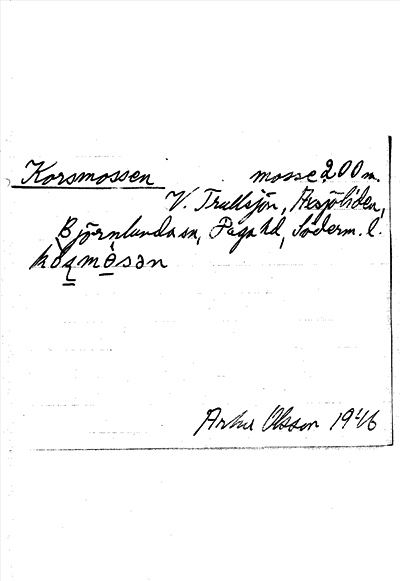 Korsmossen mosse 200 m.
V. Trullsjön, Årsjöliden,
Björnlunda sn, Daga hd, Söderm. l.
kòşmòsən
Arthur Olsson 1946